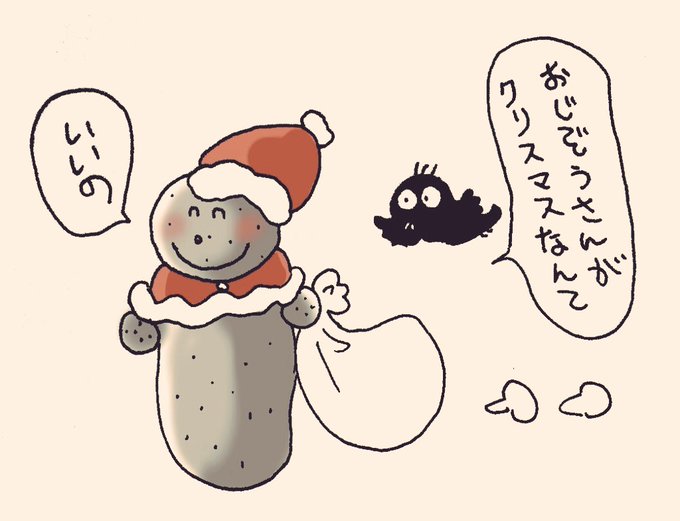 おじぞうさんが
クリスマスなんて
いいの